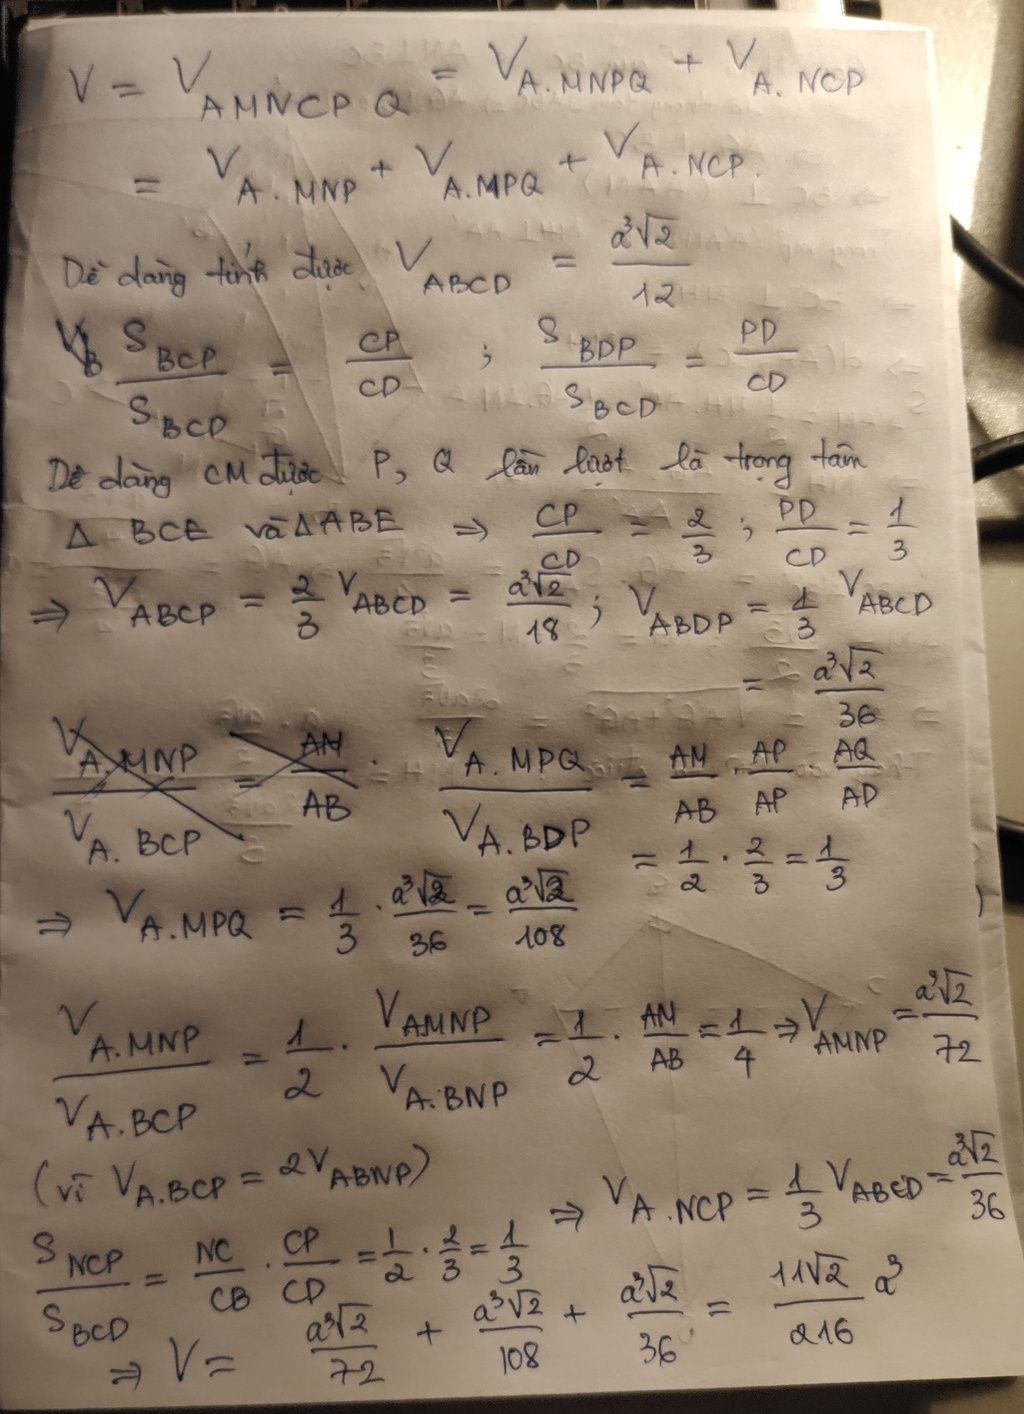 V = V_{AMNCPQ} = V_{A.MNPQ} + V_{A.NCP}
= V_{A.MNP} + V_{A.MPQ} + V_{A.NCP}.
Dễ dàng tính được V_{ABCD} = \frac{a^3\sqrt{2}}{12}
\frac{S_{BCP}}{S_{BCD}} = \frac{CP}{CD} ; \frac{S_{BDP}}{S_{BCD}} = \frac{PD}{CD}
Dễ dàng CM được P, Q lần lượt là trọng tâm
Δ BCE và Δ ABE ⇒ \frac{CP}{CD} = \frac{2}{3} ; \frac{PD}{CD} = \frac{1}{3}
⇒ V_{ABCP} = \frac{2}{3} V_{ABCD} = \frac{a^3\sqrt{2}}{18} ; V_{ABDP} = \frac{1}{3} V_{ABCD}
= \frac{a^3\sqrt{2}}{36}
\frac{V_{A.MNP}}{V_{A.BCP}} = \frac{AM}{AB} . \frac{V_{A.MPQ}}{V_{A.BDP}} = \frac{AM}{AB} . \frac{AP}{AP} . \frac{AQ}{AD}
= \frac{1}{2} . \frac{2}{3} = \frac{1}{3}
⇒ V_{A.MPQ} = \frac{1}{3} . \frac{a^3\sqrt{2}}{36} = \frac{a^3\sqrt{2}}{108}
\frac{V_{A.MNP}}{V_{A.BCP}} = \frac{1}{2} . \frac{V_{AMNP}}{V_{A.BNP}} = \frac{1}{2} . \frac{AM}{AB} = \frac{1}{4} ⇒ V_{AMNP} = \frac{a^3\sqrt{2}}{72}
(vì V_{A.BCP} = 2V_{ABNP})
\frac{S_{NCP}}{S_{BCD}} = \frac{NC}{CB} . \frac{CP}{CD} = \frac{1}{2} . \frac{2}{3} = \frac{1}{3} ⇒ V_{A.NCP} = \frac{1}{3} V_{ABCD} = \frac{a^3\sqrt{2}}{36}
⇒ V = \frac{a^3\sqrt{2}}{72} + \frac{a^3\sqrt{2}}{108} + \frac{a^3\sqrt{2}}{36} = \frac{11\sqrt{2}}{216} a^3